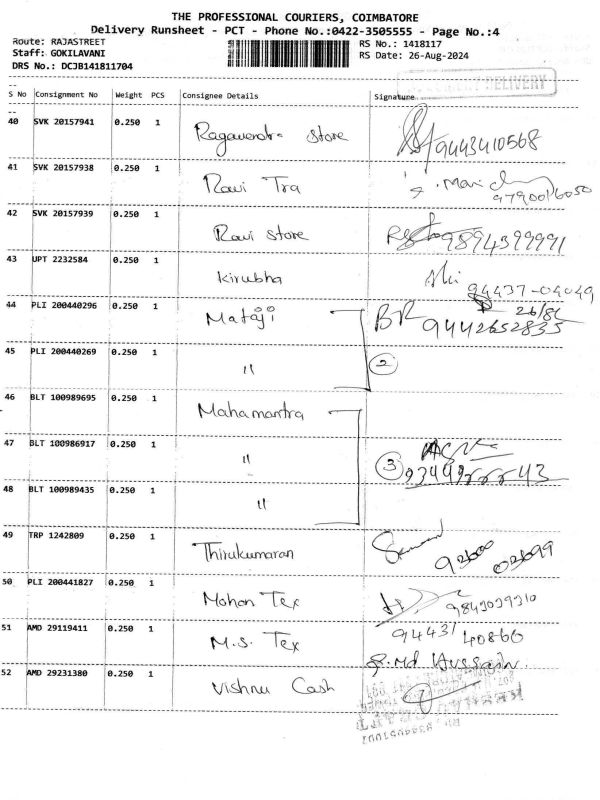 THE PROFESSIONAL COURIERS, COIMBATORE
Delivery Runsheet - PCT - Phone No.:0422-3505555 - Page No.:4
Route: RAJASTREET RS No.: 1418117
Staff: GOKILAVANI RS Date: 26-Aug-2024
DRS No.: DCJB141811704
DELIVERY
S No Consignment No Weight PCS Consignee Details Signature
40 SVK 20157941 0.250 1 Store 9443410568
41 SVK 20157938 0.250 1 Ravi Tra 9790016050
42 SVK 20157939 0.250 1 Ravi Store 9894399991
43 UPT 2232584 0.250 1 Kirubha 94437-04049
44 PLI 200440296 0.250 1 Mataji BR 9442652835
45 PLI 200440269 0.250 1 " 2
46 BLT 100989695 0.250 1 Mahamantra
47 BLT 100986917 0.250 1 " 3
48 BLT 100989435 0.250 1 "
49 TRP 1242809 0.250 1 Thirukumaran 92600 02699
50 PLI 200441827 0.250 1 Mohan Tex
51 AMD 29119411 0.250 1 M.S. Tex 94431 40860
S. Md Hussain
52 AMD 29231380 0.250 1 Vishnu Cash